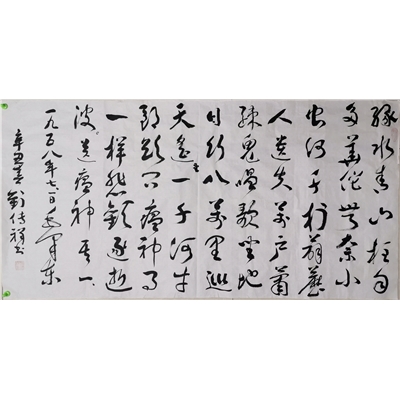 绿水青山枉自
多華佗無奈小
虫何千村薜荔
人遗失萬户萧
疎鬼唱歌坐地
日行八萬里巡
天遥看一千河牛
郎欲问瘟神事
一样悲歡逐逝
波送瘟神其一
一九五八年七月一日毛泽东
辛丑春劉传祥书